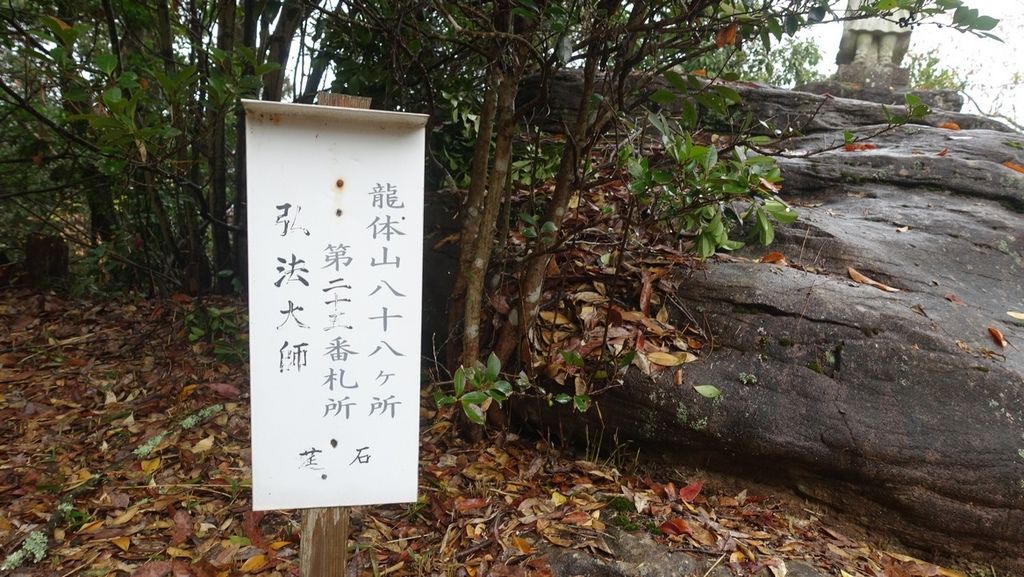 龍体山八十八ヶ所
第二十五番札所
弘法大師
石